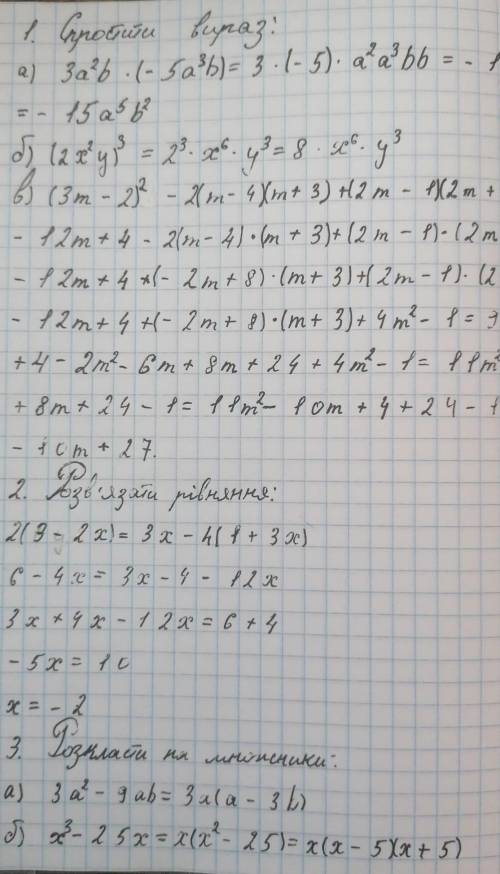 1. Спростити вираз:
а) 3a²b · (- 5a³b) = 3 · (-5) · a²a³bb = - 1
= - 15a⁵b²
б) (2x²y)³ = 2³ · x⁶ · y³ = 8 · x⁶ · y³
в) (3m - 2)² - 2(m - 4)(m + 3) + (2m - 1)(2m +
- 12m + 4 - 2(m - 4) · (m + 3) + (2m - 1) · (2m
- 12m + 4 + (- 2m + 8) · (m + 3) + (2m - 1) · (2
- 12m + 4 + (- 2m + 8) · (m + 3) + 4m² - 1 = 9
+ 4 - 2m² - 6m + 8m + 24 + 4m² - 1 = 11m²
+ 8m + 24 - 1 = 11m² - 10m + 4 + 24 - 1
- 10m + 27.
2. Розв'язати рівняння:
2(3 - 2x) = 3x - 4(1 + 3x)
6 - 4x = 3x - 4 - 12x
3x + 4x - 12x = 6 + 4
- 5x = 10
x = - 2
3. Розкласти на множники:
а) 3a² - 9ab = 3a(a - 3b)
б) x³ - 25x = x(x² - 25) = x(x - 5)(x + 5)